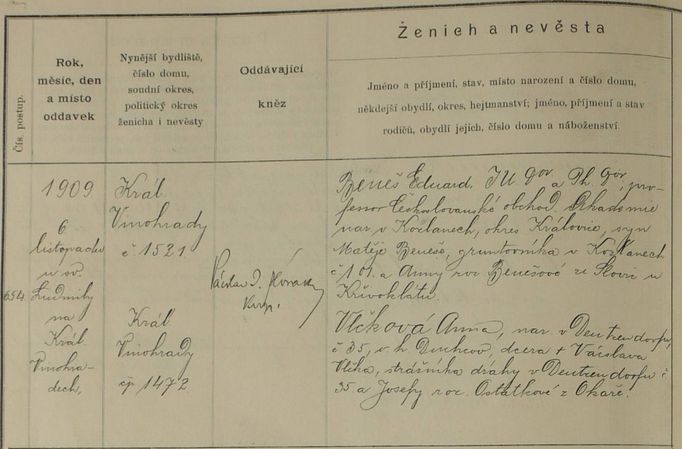 Ženich a nevěsta
Čís. postup.
Rok,
měsíc, den
a místo
oddavek
Nynější bydliště,
číslo domu,
soudní okres,
politický okres
ženicha i nevěsty
Oddávající
kněz
Jméno a příjmení, stav, místo narození a číslo domu,
někdejší obydlí, okres, hejtmanství; jméno, příjmení a stav
rodičů, obydlí jejich, číslo domu a náboženství.
654
1909
6
listopadu
u sv.
Ludmily
na
Král.
Vinohra-
dech,
Král.
Vinohrady
č 1521
Král.
Vinohrady
čp 1472
Václav
Beneš Eduard. JU Dor a Ph. Dor, pro-
fesor Českoslovanské obchod. Akademie
nar. v Kožlanech, okres Kralovice, syn
Matěje Beneše, gruntovníka v Kožlanech
č 101. a Anny roz Benešové ze Slovic u
Křivoklátu.
Vlčková Anna, nar. v Deutzendorfu,
č 35, o. h. Duchcov, dcera + Václava
Vlčka, strážníka dráhy v Deutzendorfu č
35 a Josefy roz. Ostatkové z Okoře.